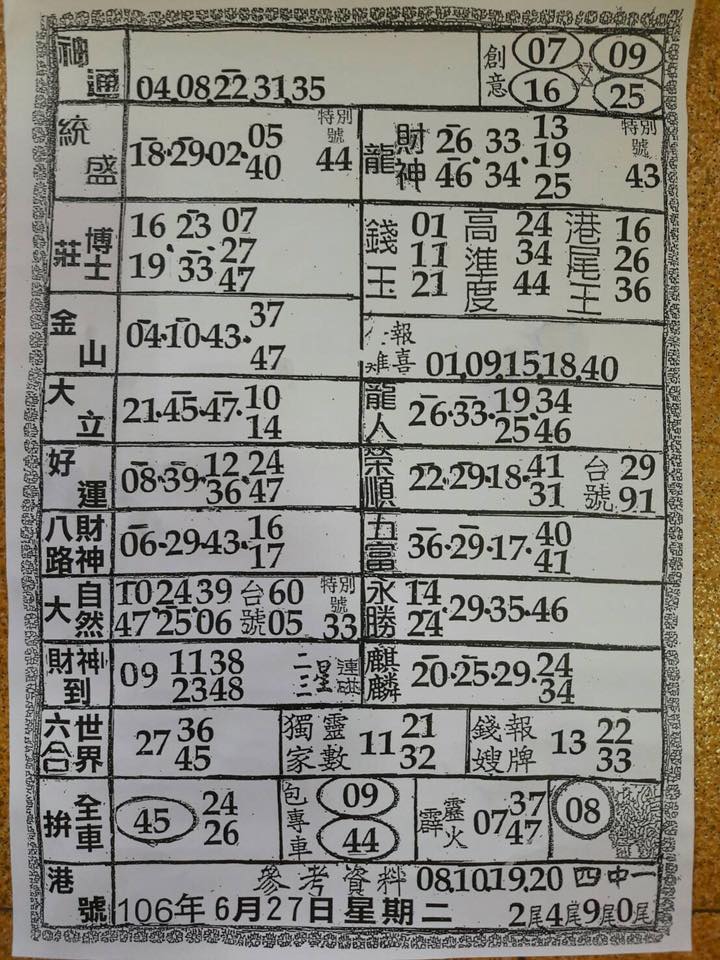 神通 04.08.22.31.35 創意 07 09 16 25
統盛 18.29.02.05 40 特別號 44
龍 財神 26.33.13 46 34 19 25 特別號 43
莊博士 16 23 07 19 33 27 47
錢玉 01 11 21 高準度 24 34 44 港尾王 16 26 36
金山 04.10.43.37 47
報喜 01.09.15.18.40
大立 21.45.47.10 14
龍人 26.33.19.34 25 46
好運 08.39.12.24 36 47
榮順 22.29.18.41 31 台號 29 91
八路財神 06.29.43.16 17
五富 36.29.17.40 41
大自然 10 24 39 47 25 06 台號 60 05 特別號 33
永勝 14 24.29.35.46
財神到 09 11 38 23 48 二三星連碰
麒麟 20.25.29.24 34
六合世界 27 36 45
獨家靈數 11 21 32
錢嫂報牌 13 22 33
拚全車 45 24 26
包專車 09 44
霹靂火 07 37 47
08
港號 參考資料 08.10.19.20 四中一
106年6月27日星期二 2尾4尾9尾0尾